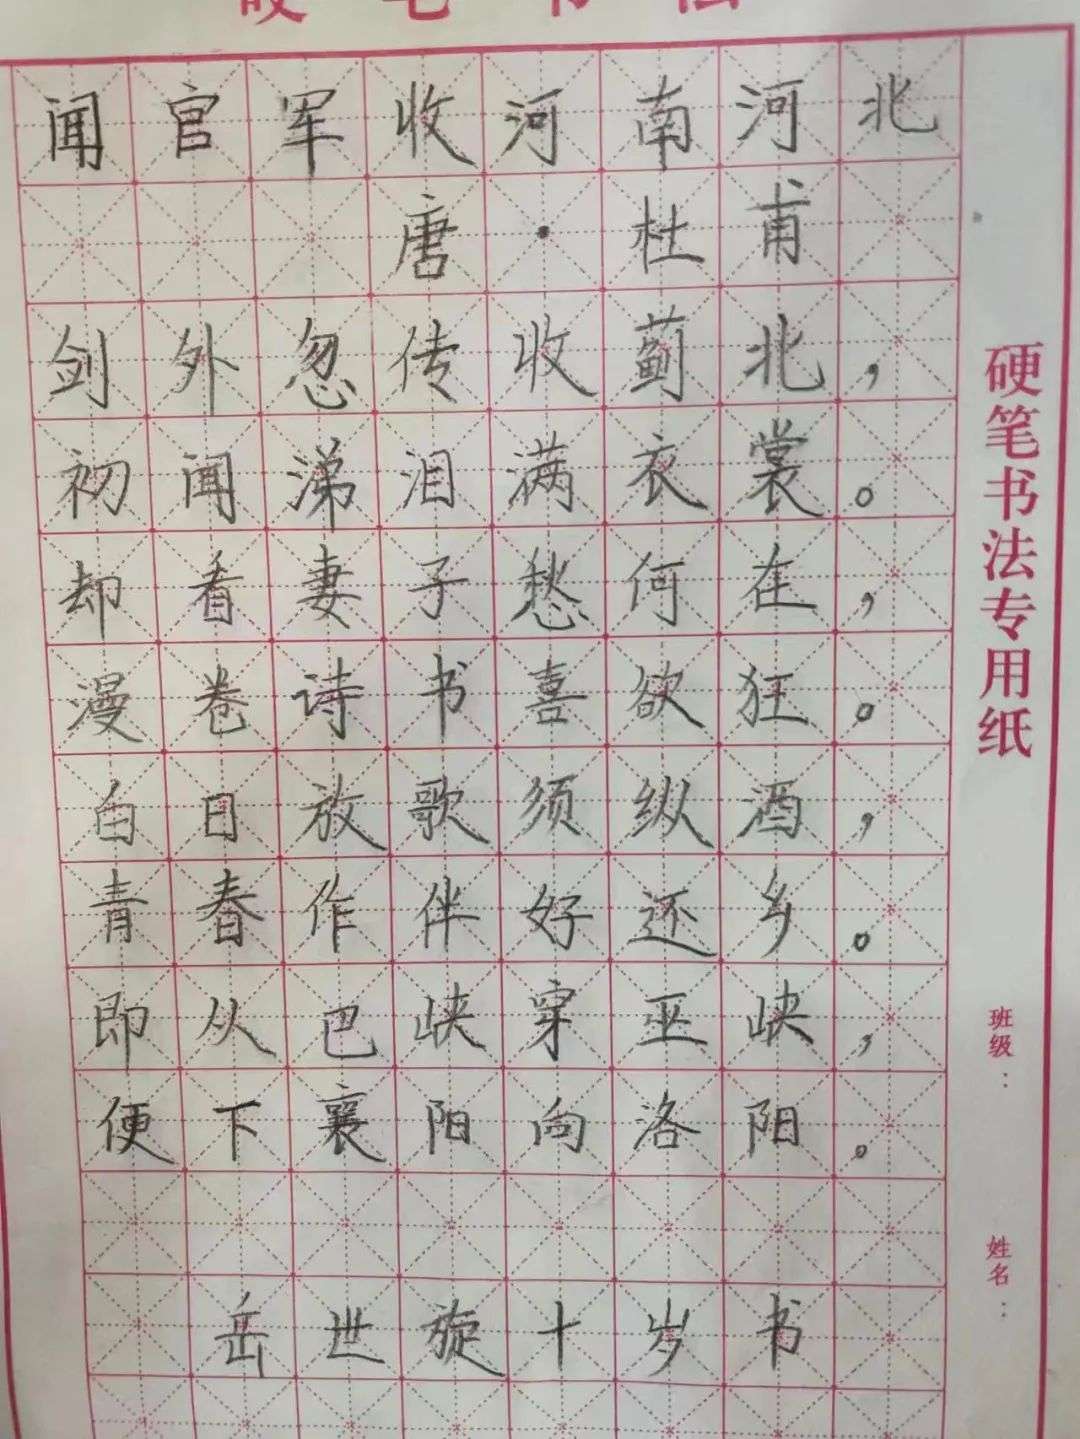 硬笔书法
闻官军收河南河北
唐·杜甫
剑外忽传收蓟北，
初闻涕泪满衣裳。
却看妻子愁何在，
漫卷诗书喜欲狂。
白日放歌须纵酒，
青春作伴好还乡。
即从巴峡穿巫峡，
便下襄阳向洛阳。
岳世旋十岁书
硬笔书法专用纸
班级：
姓名：